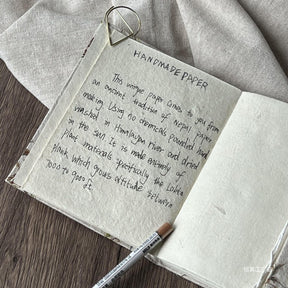 HANDMADE PAPER
This unique paper comes to you from
an ancient tradition of Nepal paper
making. Using no chemicals pounded hand
washed in Himalayan river and dried
in the sun. It is made entirely of
plant materials specifically the Lokta
Plant which grows altitude between
7000 to 9000 ft.